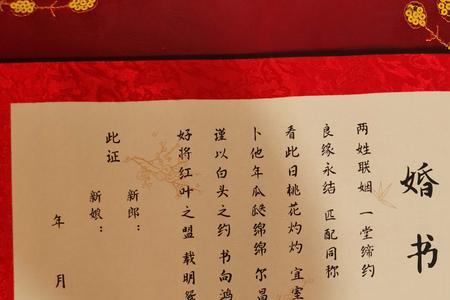 婚书
两姓联姻 一堂缔约
良缘永结 匹配同称
看此日桃花灼灼 宜室
卜他年瓜瓞绵绵 尔昌
谨以白头之约 书向鸿
好将红叶之盟 载明
此证
新郎：
新娘：
年 月